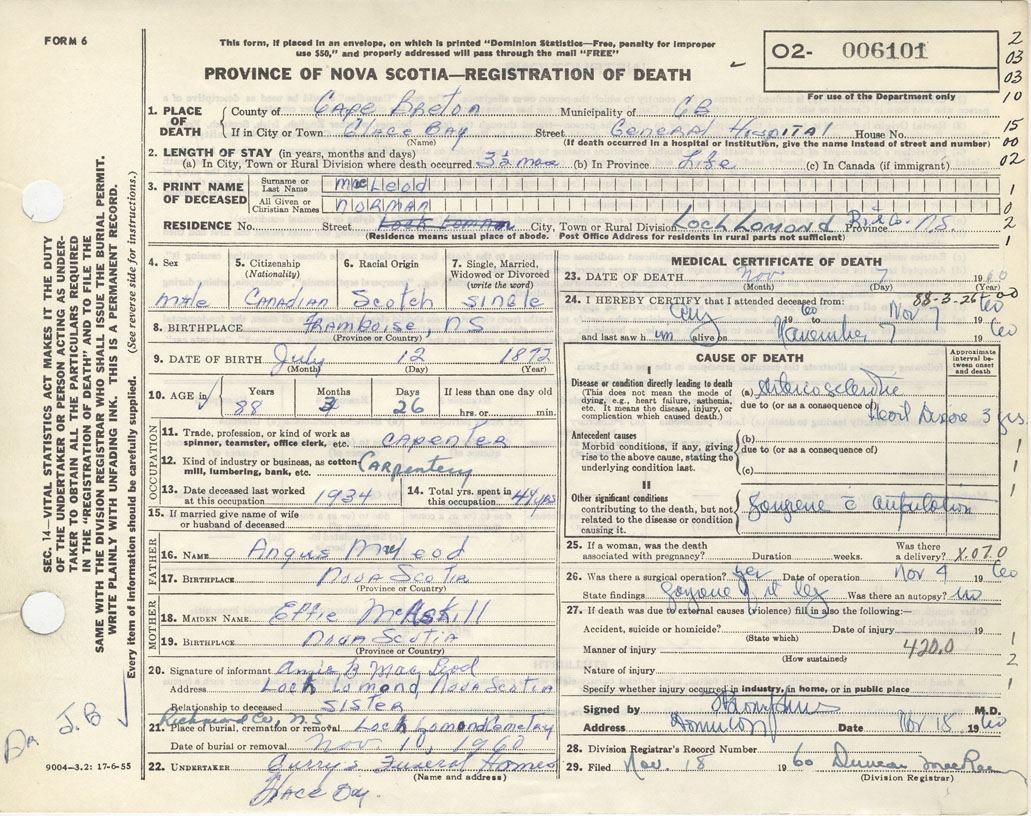 FORM 6
This form, if placed in an envelope, on which is printed "Dominion Statistics—Free, penalty for improper
use $50," and properly addressed will pass through the mail "FREE"
02- 006101
PROVINCE OF NOVA SCOTIA—REGISTRATION OF DEATH
For use of the Department only
2
03
03
10
15
00
02
1
0
2
1
1. PLACE OF DEATH
County of Cape Breton Municipality of CB
If in City or Town Glace Bay Street General Hospital House No.
(Name) (If death occurred in a hospital or Institution, give the name instead of street and number)
2. LENGTH OF STAY (in years, months and days)
(a) In City, Town or Rural Division where death occurred 3½ mos (b) In Province Life (c) In Canada (if immigrant)
3. PRINT NAME OF DECEASED
Surname or Last Name MacLeod
All Given or Christian Names NORMAN
RESIDENCE No. Street Loch Lomond City, Town or Rural Division Loch Lomond Rich Co. Province N.S.
(Residence means usual place of abode. Post Office Address for residents in rural parts not sufficient)
4. Sex
male
5. Citizenship
(Nationality)
Canadian
6. Racial Origin
Scotch
7. Single, Married,
Widowed or Divorced
(write the word)
Single
8. BIRTHPLACE Framboise, NS
(Province or Country)
9. DATE OF BIRTH July 12 1872
(Month) (Day) (Year)
10. AGE in Years 88 Months 3 Days 26 If less than one day old
hrs. or min.
OCCUPATION
11. Trade, profession, or kind of work as
spinner, teamster, office clerk, etc. Carpenter
12. Kind of industry or business, as cotton
mill, lumbering, bank, etc. Carpentery
13. Date deceased last worked
at this occupation 1934
14. Total yrs. spent in
this occupation 44 yrs
15. If married give name of wife
or husband of deceased
FATHER
16. NAME Angus McLeod
17. BIRTHPLACE Nova Scotia
(Province or Country)
MOTHER
18. MAIDEN NAME Effie McAskill
19. BIRTHPLACE Nova Scotia
(Province or Country)
20. Signature of informant Annie B. MacLeod
Address Loch Lomond Nova Scotia
Relationship to deceased Sister
Richmond Co, N.S
21. Place of burial, cremation or removal Loch Lomond Cemetery
Date of burial or removal Nov. 10, 1960
22. UNDERTAKER Curry's Funeral Homes
(Name and address)
Glace Bay.
MEDICAL CERTIFICATE OF DEATH
23. DATE OF DEATH Nov 7 1960
(Month) (Day) (Year)
88-3-26
00
24. I HEREBY CERTIFY that I attended deceased from:
Aug 1960 to Nov 7 1960
and last saw h im alive on November 7 1960
CAUSE OF DEATH
Approximate interval between onset and death
I
Disease or condition directly leading to death
(This does not mean the mode of dying, e.g., heart failure, asthenia, etc. It means the disease, injury, or complication which caused death.)
(a) Arteriosclerotic
due to (or as a consequence of) 3 yrs.
Antecedent causes
Morbid conditions, if any, giving rise to the above cause, stating the underlying condition last.
(b)
due to (or as a consequence of)
(c)
1
1
1
II
Other significant conditions
contributing to the death, but not related to the disease or condition causing it.
Gangrene c̄ amputation
25. If a woman, was the death
associated with pregnancy? Duration weeks. Was there
a delivery? X.070
26. Was there a surgical operation? Yes Date of operation Nov 4 1960
State findings Gangrene of lt leg Was there an autopsy? no
27. If death was due to external causes (violence) fill in also the following:—
Accident, suicide or homicide? Date of injury 19
(State which)
Manner of injury 420.0
(How sustained)
1
2
Nature of injury
Specify whether injury occurred in industry, in home, or in public place
Signed by M.D.
Address Dominion Date Nov 15 1960
28. Division Registrar's Record Number
29. Filed Nov. 18 1960 Duncan MacRae
(Division Registrar)
SEC. 14—VITAL STATISTICS ACT MAKES IT THE DUTY
OF THE UNDERTAKER OR PERSON ACTING AS UNDER-
TAKER TO OBTAIN ALL THE PARTICULARS REQUIRED
IN THE "REGISTRATION OF DEATH" AND TO FILE THE
SAME WITH THE DIVISION REGISTRAR WHO SHALL ISSUE THE BURIAL PERMIT.
WRITE PLAINLY WITH UNFADING INK. THIS IS A PERMANENT RECORD.
Every item of information should be carefully supplied. (See reverse side for instructions.)
Dr J.B
9004—3.2: 17-6-55